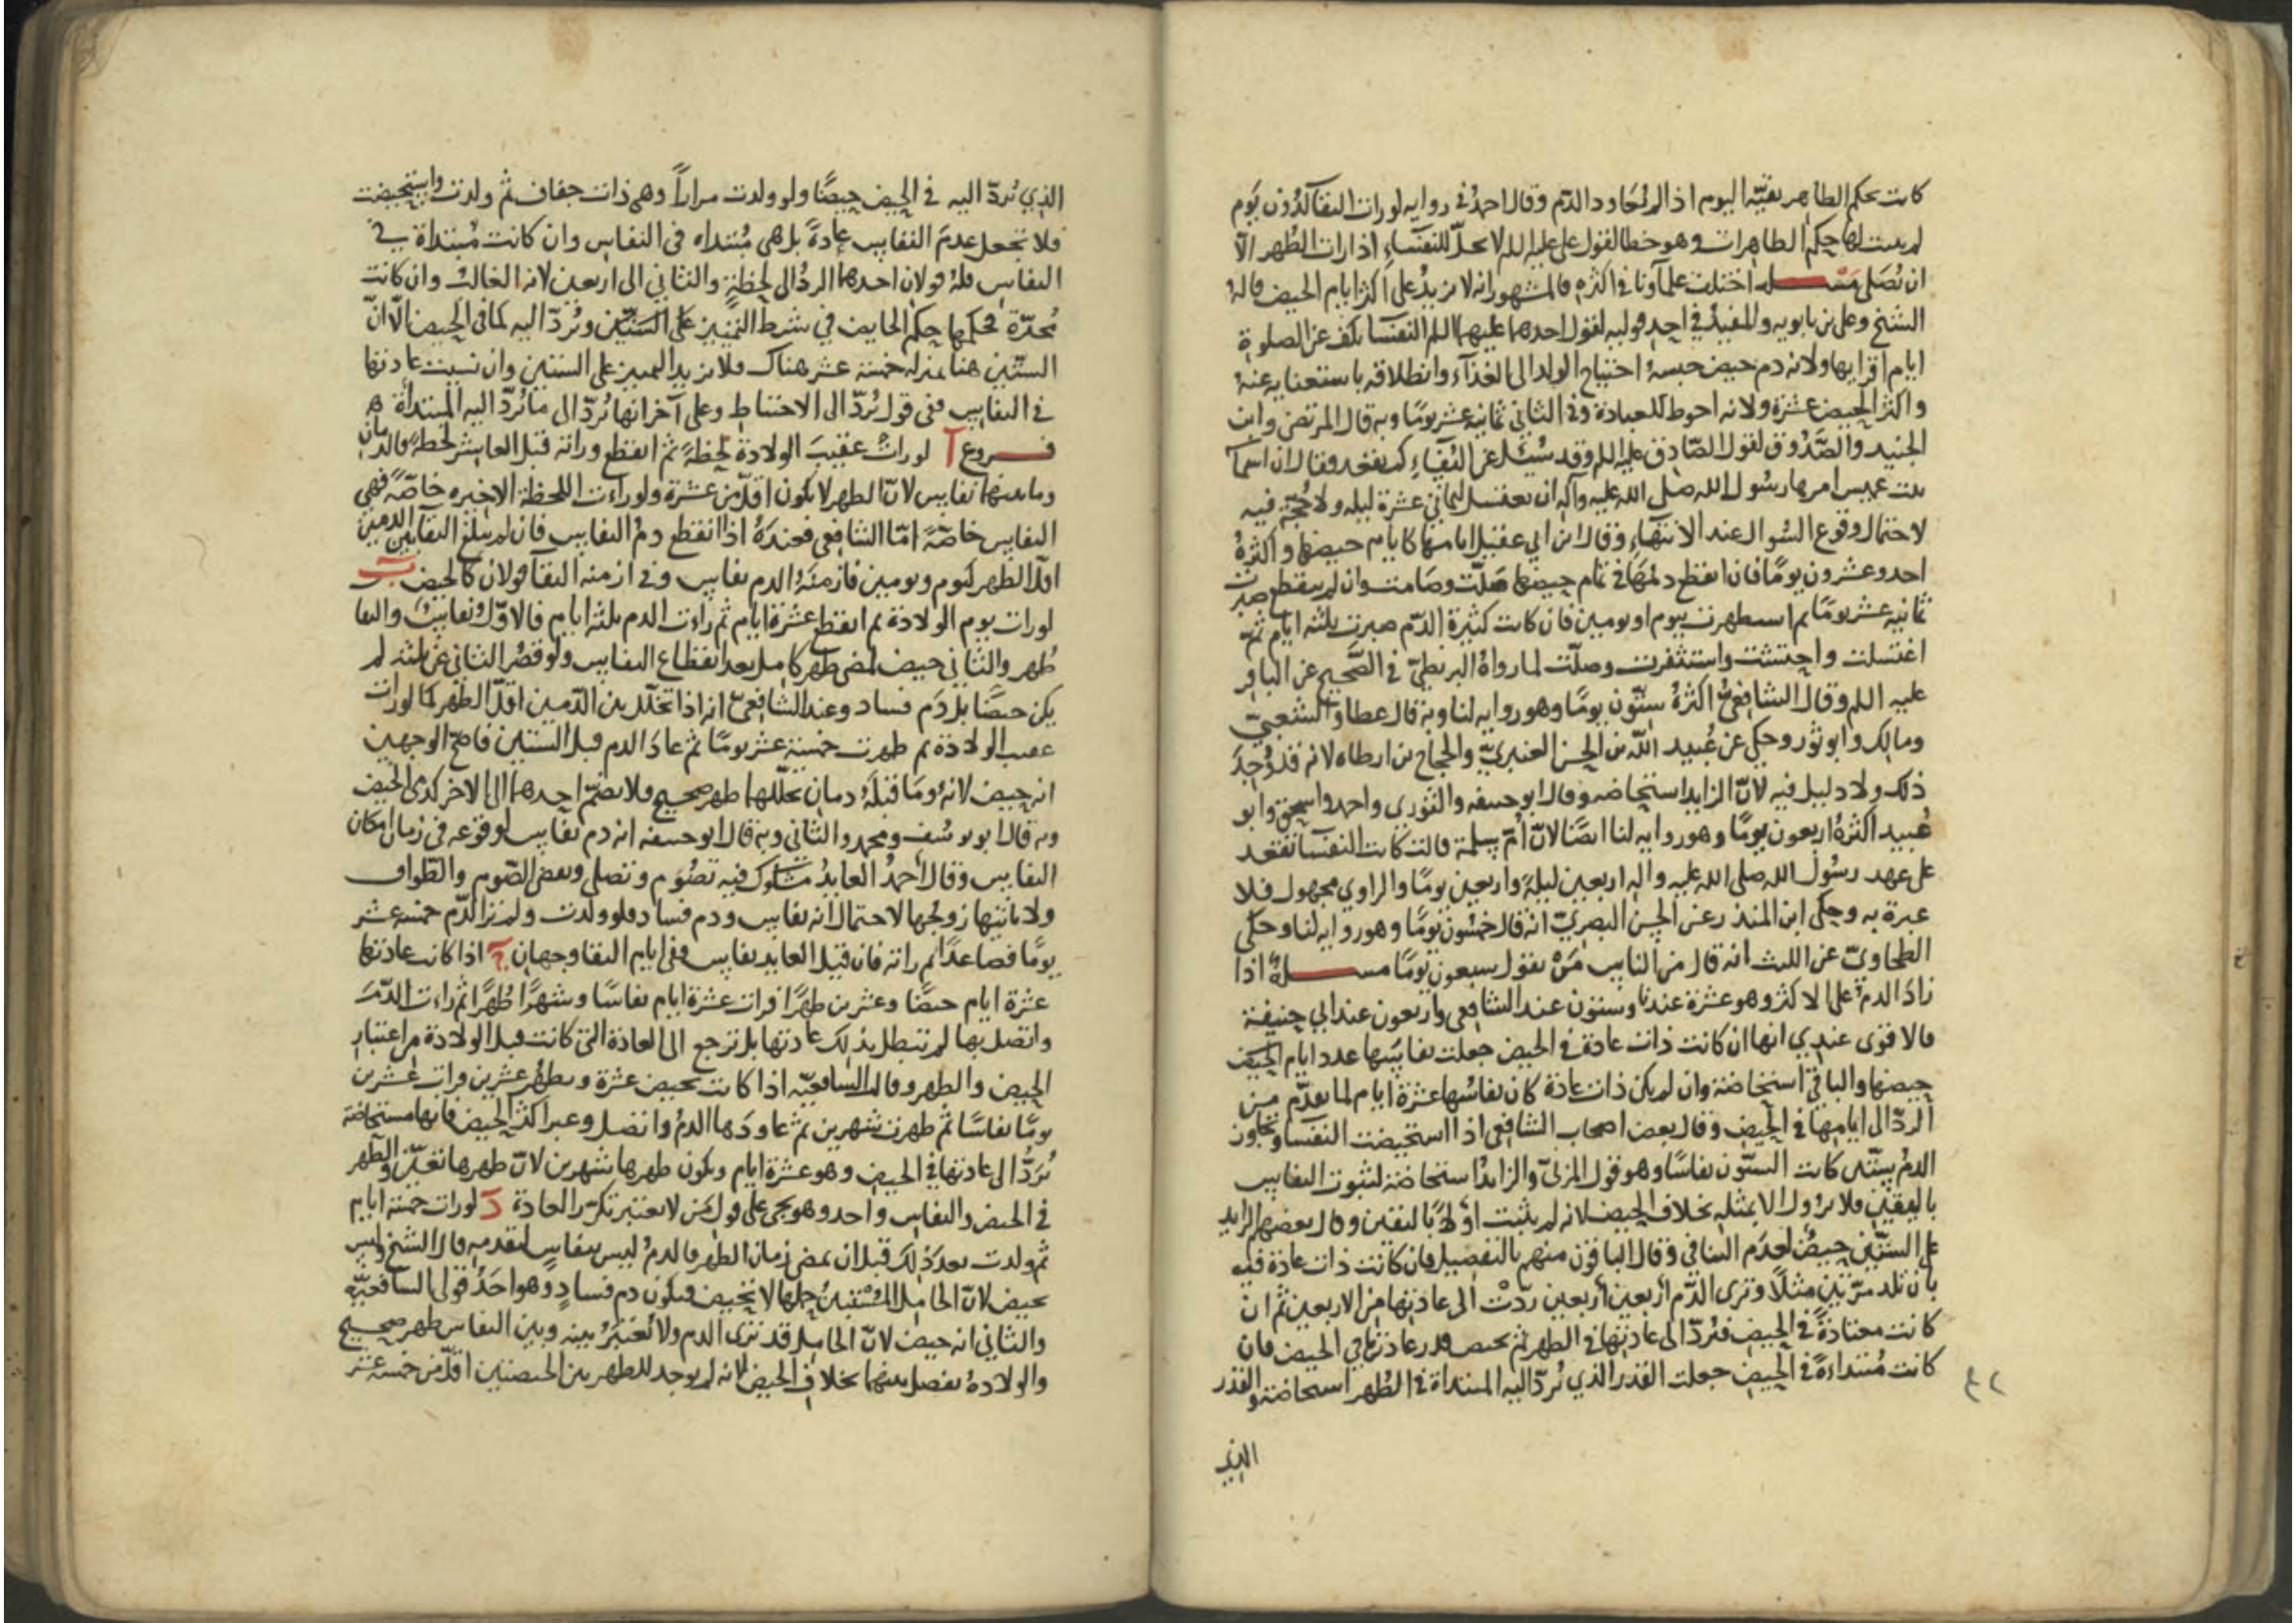 كانت بحكم الطاهر بقيّة اليوم اذا لم يُعاود الدّم وقال احمدُ في رواية لو رات النقآ لدُون يَوم
لم يثبت لها حكم الطاهرات وهو خطا لقول علي عليه اللم لا يحلّ للنفسَاءِ اذا رات الطُهر الّا
ان تُصَلى مَسْـــلة اختلف علمآونا في اكثره فالمشهور انه لا يزيدُ على اكثر ايام الحيض قاله
الشيخ وعلى بن بابويه والمفيدُ في احد قوليه لقول احدهما عليهما اللم النفسَا تكف عن الصلوة
ايام اقرايها ولانه دم حيض حبسهُ احتياج الولد الى الغذآء وانطلاقه باستغنايه عنهُ
واكثر الحيض عشرة ولانه احوط للعبادة وفي الثاني ثمانية عشر يومًا وبه قال المرتضى وابن
الجنيد والصَّدُوق لقول الصّادق عليه اللم وقد سُئل عن النُفَساءِ كم تقعد فقال ان اسماَ
بنت عميس امرها رسُول الله صلى الله عليه وآله ان تغتسل لثماني عشرة ليله ولا حُجّة فيه
لاحتمال وقوع السُوال عند الانتهاءِ وقال ابن ابي عقيل ايامها كايام حيضها واكثرهُ
احد وعشرون يومًا فان انقطع دمُهَا في تمام حيضها صَلّت وصَامت وان لم ينقطع صبرت
ثمانيه عشر يومًا ثم استظهرت بيوم او يومين فان كانت كثيرة الدّم صبرت ثلثه ايام ثمّ
اغتسلت واحتشت واستثفرت وصلّت لما رواهُ البزنطيّ في الصّحيح عن الباقر
عليه اللم وقال الشافعيُّ اكثرهُ ستّون يومًا وهو رواية لنا وبه قال عطا والشعبيّ
ومالك وابو ثور وحكى عن عُبيد الله بن الحسن العنبريّ والحجاج بن ارطاه لانه قد وُجدَ
ذلك ولا دليل فيه لانّ الزايد استحاضه وقال ابو حنيفه والثوري واحمد واسحق وابو
عُبيد اكثرهُ اربعون يومًا وهو رواية لنا ايضًا لانّ اُمّ سلمة قالت كانت النفسَا تقعد
على عهد رسُول الله صلى الله عليه واله اربعين ليلةً واربعين يومًا والراوي مجهول فلا
عبرة به وحكى ابن المنذر عن الحسن البصريّ انه قال خمسُون يومًا وهو رواية لنا وحكى
الطحاويّ عن الليث انه قال من الناس مَنْ يقول سبعون يَومًا مســـلةٌ اذا
زادَ الدم على الاكثر وهو عشرة عندنا وستون عند الشافعي واربعون عند ابي حنيفة
فالاقوى عندي انها ان كانت ذات عادة في الحيض جعلت نفاسَها عدد ايام الحيض
حيضها والباقي استحاضة وان لم يكن ذات عادة كان نفاسُها عشرة ايام لما تقدّم من
الردّ الى ايامها في الحيض وقال بعض اصحاب الشافعي اذا استحيضت النفسَا وتجاوز
الدمُ ستّين كانت الستّون نفاسًا وهو قول المزنيّ والزايدُ استحاضة لثبوت النفاس
باليقين فلا يزول الا بمثله بخلاف الحيض لانه لم يثبت اوّلًا باليقين وقال بعضهم الزايد
على الستّين حيضٌ لعدم التنافي وقال الباقون منهم بالتفصيل فان كانت ذات عادة فيه
بان تلد مرّتين مثلًا وترى الدّم اربعين اربعين ردّتْ الى عادتها من الاربعين ثم ان
كانت معتادةً في الحيض فتُردّ الى عادتها في الطهر ثم تحيض قدر عادتها في الحيض فان
كانت مُبتداءةً في الحيض جعلت القدر الذي تُردّ اليه المبتداة في الطُهر استحاضة والقدر
الذي
٤٢
الذي تُردّ اليه في الحيض حيضًا ولو ولدت مراراً وهى ذات جفاف ثم ولدت واستحيضت
فلا تجعل عدمَ النفاس عادةً بل هى مُبتداه في النفاس وان كانت مُبتداة في
النفاس فلهُ قولان احدهما الردُ الى لحظةٍ والثاني الى اربعين لانه الغالبُ وان كانت
مُميزة فحكمها حكم الحايض في شرط التمييز على الستّين وتُردّ اليه كما في الحيض الّا انّ
الستّين هنا بمنزلة خمسة عشر هناك فلا يزيد المميز على الستين وان نسيت عادتها
في النفاس ففى قول تُردّ الى الاحتياط وعلى آخر انها تُردّ الى مَا تُردّ اليه المبتداة
فــروع آ لو رات عقيب الولادة لحظةً ثم انقطع وراته قبل العاشر لحظةً فالدمان
وما بينهما نفاس لانّ الطهر لا يكون اقلّ من عشرة ولو راءت اللحظة الاخيره خاصّةً فهي
النفاس خاصّةً امّا الشافعي فعندهُ اذا انقطع دمُ النفاس فان لم يبلغ النقا بين الدمين
اقلّ الطهر كيوم ويومين فازمنهُ الدم نفاس وفي ازمنه النقا قولان كالحيض ب
لو رات يوم الولادة ثم انقطع عشرة ايام ثم راءت الدم ثلثه ايام فالاوّل نفاسٌ والنقا
طُهر والثاني حيض لمضى طهر كامل بعد انقطاع النفاس ولو قصُر الثاني عن ثلثه لم
يكن حيضًا بل دَم فساد وعند الشافعيّ انه اذا تخلّل بين الدّمين اقلّ الطهر كما لو رات
عقيب الولادة ثم طهرت خمسة عشر يومًا ثم عادَ الدم قبل الستين فاصحّ الوجهين
انه حيض لانهُ ومَا قبلَهُ دمان تخلّلهما طهر صحيح فلا يضمّ احدهما الى الاخر كدمى الحيض
وبه قال ابو يوسُف ومحمد والثاني وبه قال ابو حنيفه انه دم نفاس لوقوعه في زمان امكان
النفاس وقال احمدُ العايدُ مشكوك فيه تصُوم وتصلي وتقضى الصّوم والطواف
ولا ياتيها زوجها لاحتمال انه نفاس ودم فساد فلو ولدت ولم تر الدّم خمسة عشر
يومًا فصاعدًا ثم راته فان قيل العايد نفاس ففى ايام النقا وجهان ج اذا كانت عادتها
عشرة ايام حيضًا وعشرين طهرًا فرات عشرة ايام نفاسًا وشهرًا طُهرًا ثم راءت الدّمَ
واتصل بها لم تبطل بذلك عادتها بل ترجع الى العادة التى كانت قبل الولادة من اعتبار
الحيض والطهر وقالت الشافعيّه اذا كانت تحيض عشرة وتطهُر عشرين فرات عشرين
يومًا نفاسًا ثم طهرت شهرين ثم عاودَها الدمُ واتصل وعبر اكثر الحيض فانها مستحاضة
تُردّ الى عادتها في الحيض وهو عشرة ايام ويكون طهرها شهرين لانّ طهرها تغيّر والطهر
في الحيض والنفاس واحد وهو يجي على قول مَن لا يعتبر تكرّر العادة د لو رات خمسة ايام
ثم ولدت بعد ذلك قبل ان يمضى زمان الطهر فالدمُ ليس بنفاس لتقدمه قال الشيخ وليس
بحيض لانّ الحامل المُسْتبينُ حملها لا تحيض فيكون دم فسادٍ وهو احَدُ قولى الشافعيّه
والثاني انه حيض لانّ الحامل قد ترى الدم ولا يُعتبَرُ بينه وبين النفاس طهر صحيح
والولادةُ تفصل بينهما بخلاف الحيض لانه لم يوجد للطهر بين الحيضتين اقلّ من خمسة عشر